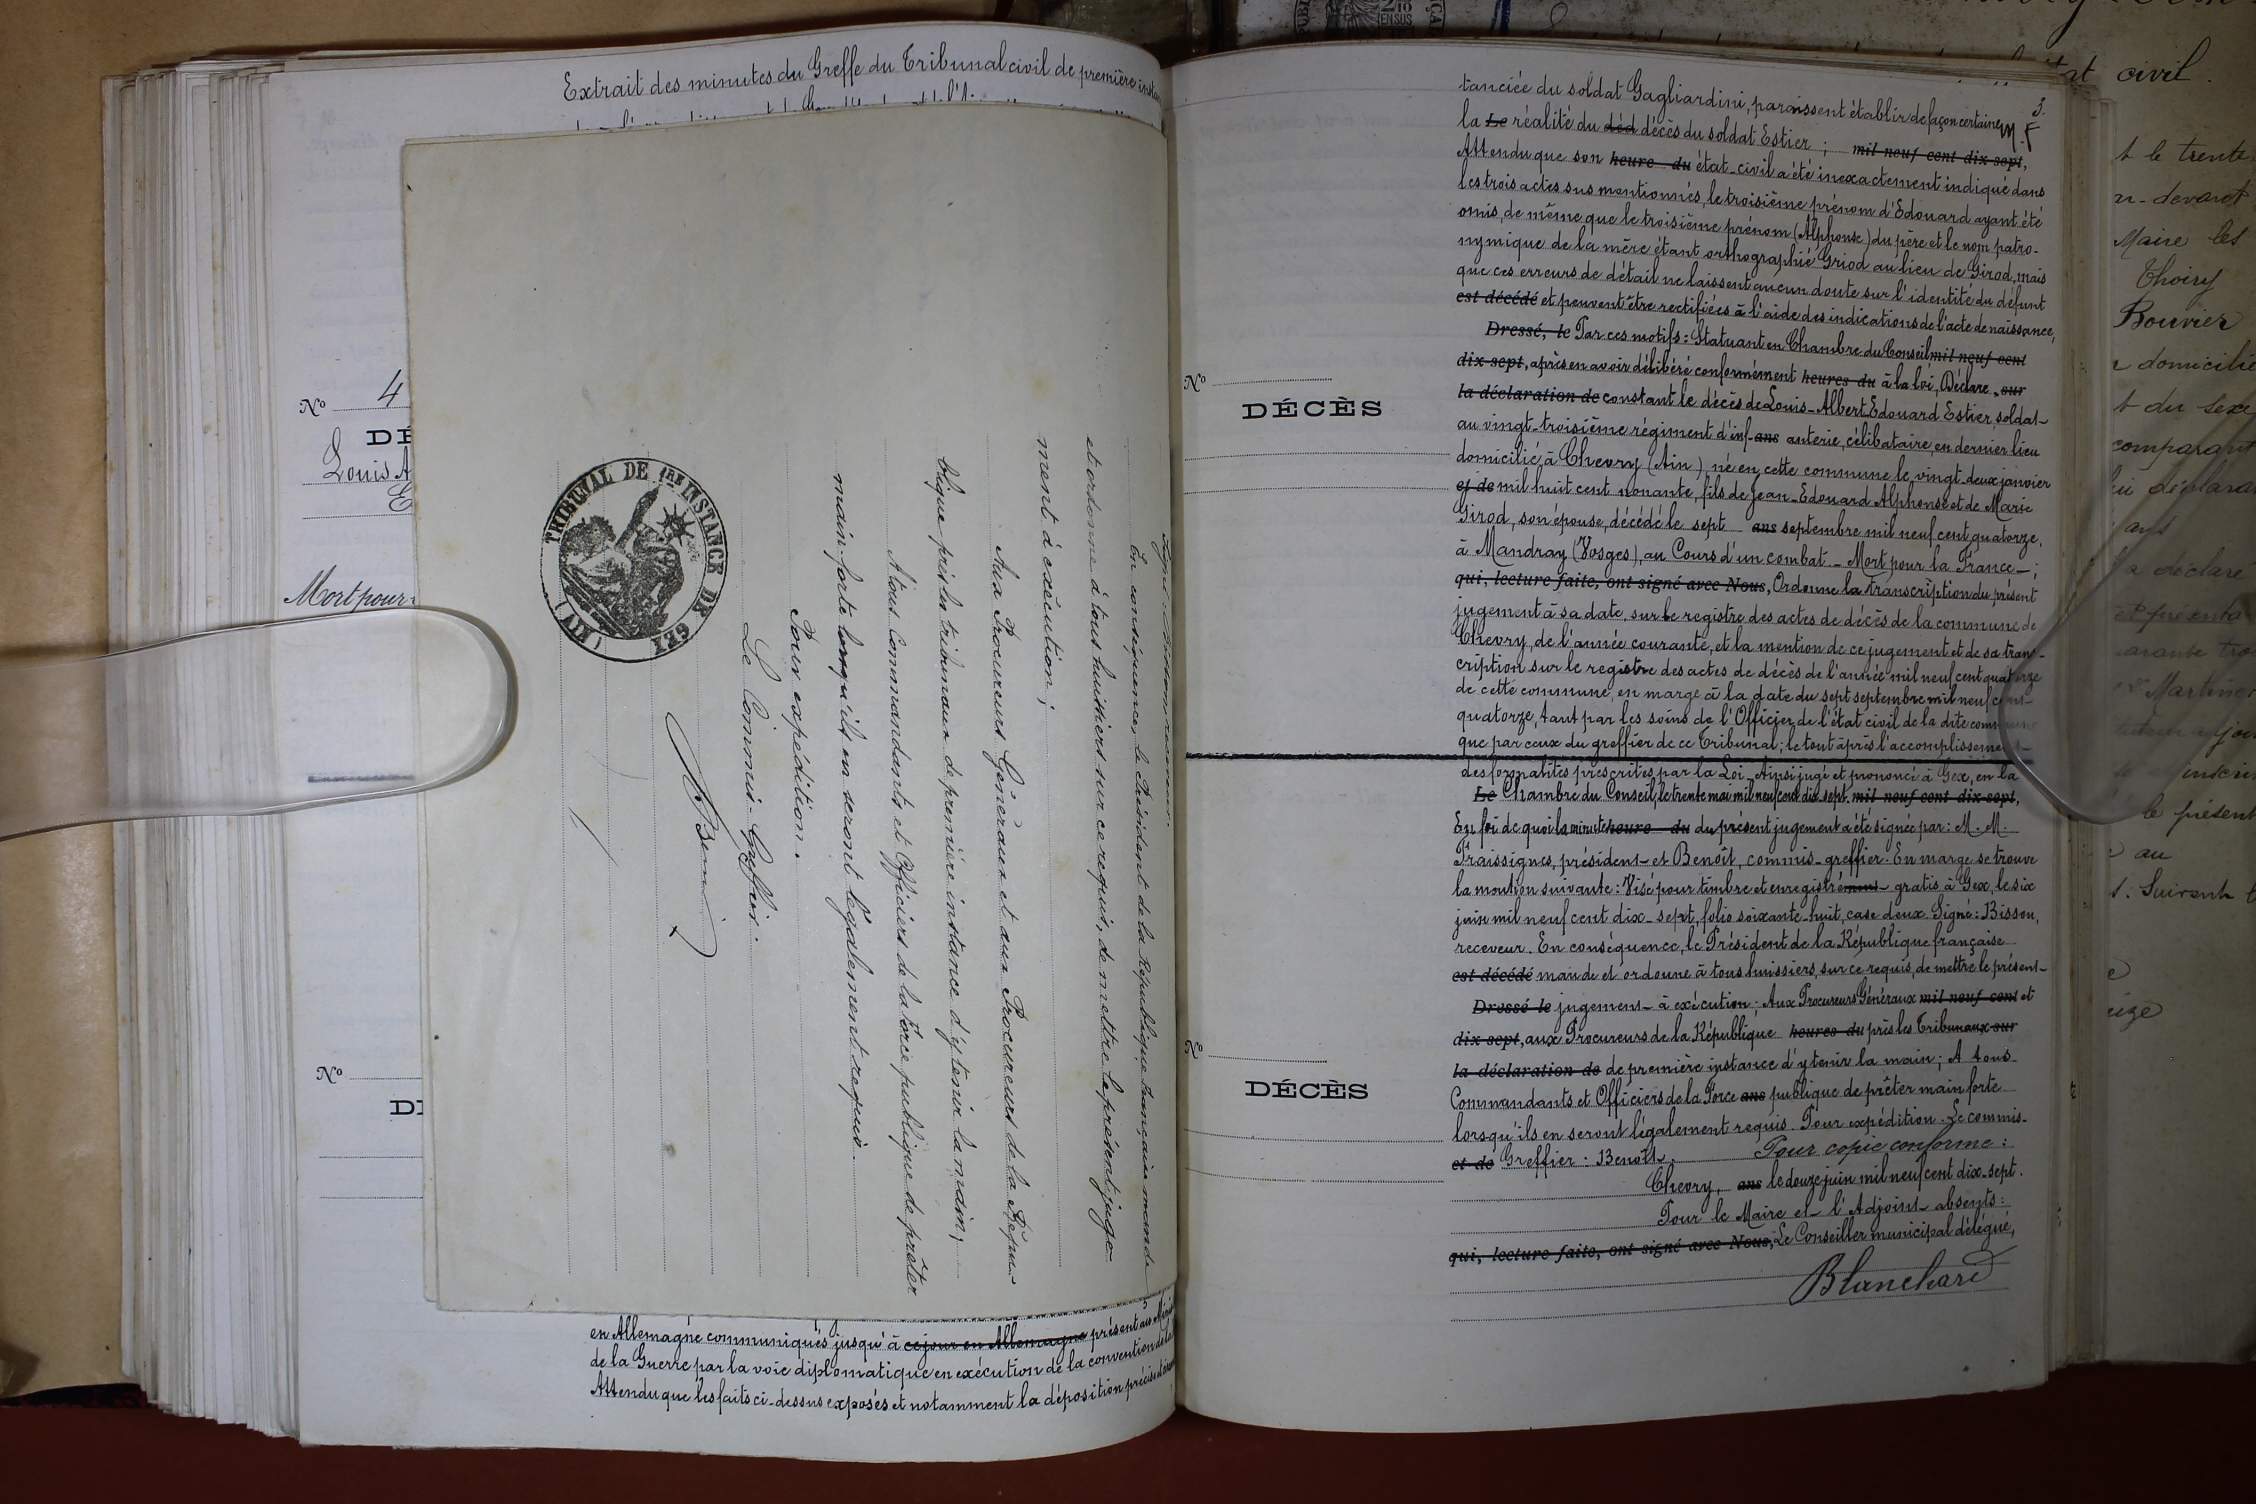 Extrait des minutes du Greffe du Tribunal civil de première
Nº 4
Louis A
Mort pour
Nº
En conséquence, le Président de la République française mande
et ordonne à tous huissiers sur ce requis, de mettre le présent juge-
ment à exécution;
Aux Procureurs Généraux et aux Procureurs de la Répu-
blique près les tribunaux de première instance d'y tenir la main;
A tous Commandants et Officiers de la force publique de prêter
main-forte lorsqu'ils en seront légalement requis.
Pour expédition.
Le Commis-Greffier.
TRIBUNAL DE 1RE INSTANCE DE GEX (AIN)
en Allemagne communiqués jusqu'à ce jour en Allemagne présent au
de la Guerre par la voie diplomatique en exécution de la convention
Attendu que les faits ci-dessus exposés et notamment la déposition
3.
tanciée du soldat Gagliardini, paraissent établir de façon certaine
la Le réalité du déd décès du soldat Estier; mil neuf cent dix-sept,
Attendu que son heure du état-civil a été inexactement indiqué dans
les trois actes sus mentionnés, le troisième prénom d'Edouard ayant été
omis, de même que le troisième prénom (Alphonse) du père et le nom patro-
nymique de la mère étant orthographié Griod au lieu de Girod, mais
que ces erreurs de détail ne laissent aucun doute sur l'identité du défunt
est décédé et peuvent être rectifiées à l'aide des indications de l'acte de naissance,
Dressé, le Par ces motifs: Statuant en Chambre du Conseil mil neuf cent
dix-sept, après en avoir délibéré conformément heures du à la loi, Déclare sur
la déclaration de constant le décès de Louis-Albert Edouard Estier, soldat
au vingt-troisième régiment d'inf- ans anterie, célibataire, en dernier lieu
domicilié à Chevry (Ain), né en cette commune le vingt-deux janvier
et de mil huit cent nonante, fils de Jean-Edouard Alphonse et de Marie
Girod, son épouse, décédé le sept ans septembre mil neuf cent quatorze,
à Mandray (Vosges), au Cours d'un combat. - Mort pour la France -;
qui, lecture faite, ont signé avec Nous, Ordonne la transcription du présent
jugement à sa date, sur le registre des actes de décès de la commune de
Chevry, de l'année courante, et la mention de ce jugement et de sa trans-
cription sur le registre des actes de décès de l'année mil neuf cent quatorze
de cette commune, en marge à la date du sept septembre mil neuf cent-
quatorze, tant par les soins de l'Officier de l'état civil de la dite commune
que par ceux du greffier de ce Tribunal; le tout après l'accomplissement
des formalités prescrites par la Loi. Ainsi jugé et prononcé à Gex, en la
Le Chambre du Conseil, le trente mai mil neuf cent dix-sept. mil neuf cent dix-sept,
En foi de quoi la minute heure du du présent jugement a été signée par: M. M.
Fraissignes, président et Benoît, commis-greffier. En marge se trouve
la mention suivante: Visé pour timbre et enregistrément gratis à Gex, le six
juin mil neuf cent dix-sept, folio soixante-huit, case deux. Signé: Bisson,
receveur. En conséquence, le Président de la République française
est décédé mande et ordonne à tous huissiers, sur ce requis, de mettre le présent
Dressé le jugement à exécution; Aux Procureurs Généraux mil neuf cent et
dix-sept, aux Procureurs de la République heures du près les Tribunaux sur
la déclaration de de première instance d'y tenir la main; A tous
Commandants et Officiers de la Force ans publique de prêter main forte
lorsqu'ils en seront légalement requis. Pour expédition. Le commis-
et de Greffier: Benoît. Pour copie conforme:
Chevry, ans le douze juin mil neuf cent dix-sept.
Pour le Maire et l'Adjoint absents:
qui, lecture faite, ont signé avec Nous, Le Conseiller municipal délégué,
Blanchard
Nº
DÉCÈS
Nº
DÉCÈS
civil.
t le trente
devant
Maire les
Thoiry
Bouvier
domicilié
t du sexe
comparant
ans
a déclaré
le présent
au
Suivent